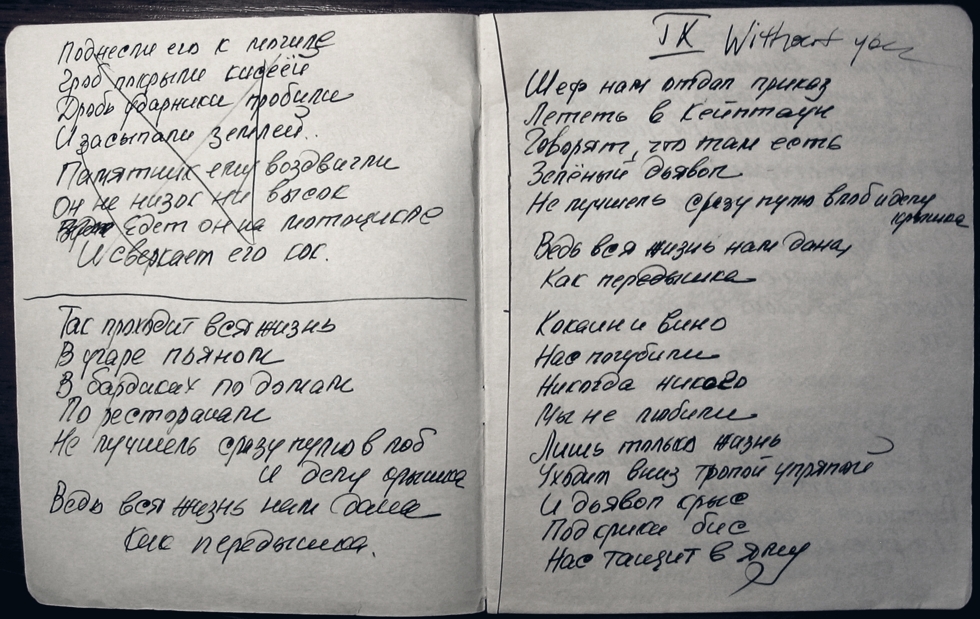 Поднесли его к могиле
Гроб покрыли кисеёй
Дробь ударники пробили
И засыпали землёй..
Памятник ему воздвигли
Он не низок ни высок
Едет он на мотоцикле
И сверкает его кок.
Так проходит вся жизнь
В угаре пьяном
В бардаках по домам
По ресторанам
Не лучшель сразу пулю в лоб
И делу крышка
Ведь вся жизнь нам дана
Как передышка.
IX Without you
Шеф нам отдал приказ
Лететь в Кейптаун
Говорят, что там есть
Зелёный дьявол
Не лучшель сразу пулю в лоб и делу
крышка
Ведь вся жизнь нам дана,
Как передышка
Кокаин и вино
Нас погубили
Никогда никого
Мы не любили
Лишь только жизнь
Уходит вниз тропой упрямой
И дьявол крыс
Под крики бис
Нас тащит в яму